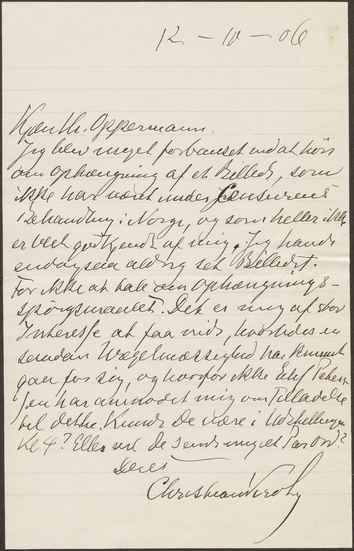 12 – 10 – 06
Kjære Hr. Oppermann.
Jeg blev meget forbauset ved at høre
om Ophængning af et Billede, som
ikke har været under Censurens
Behandling i Norge, og som heller ikke
er blevet godkjendt af mig. Jeg havde
endogsaa aldrig set Billedet.
For ikke at tale om Ophængnings-
spørgsmaalet. Det er mig af stor
Interesse at faa vide, hvorledes en
saadan Uregelmæssighed har kunnet
gaa for sig, og hvorfor ikke Eilif Peters-
sen har anmodet mig om Tilladelse
til dette. Kunde De være i Udstillingen
Kl 4? Eller vil De sende mig et Par Ord?
Deres
Christian Krohg